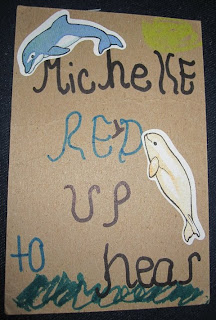 MichellE
RED
UP
to hear